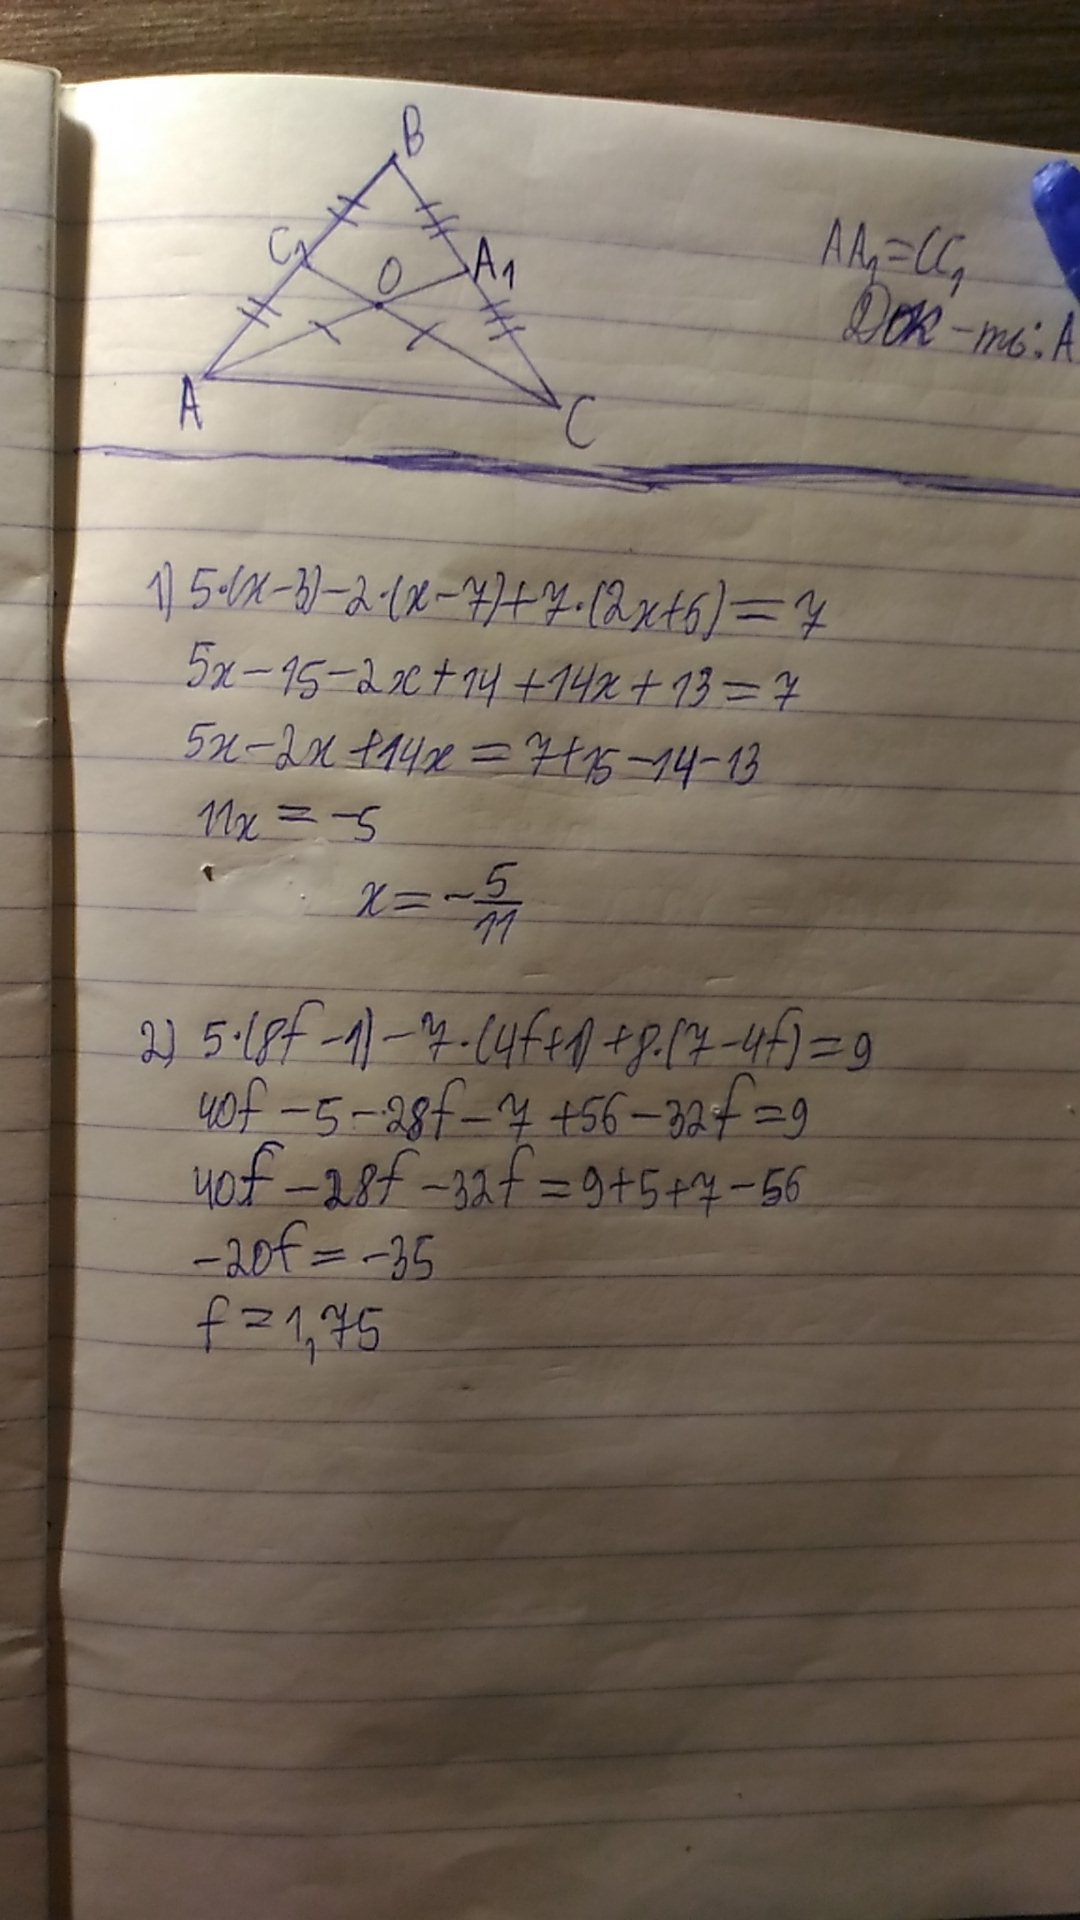 B
C₁
O
A₁
A
C
AA₁=CC₁
Док-ть: A
1) 5·(x-3)-2·(x-7)+7·(2x+6)=7
5x-15-2x+14+14x+13=7
5x-2x+14x=7+15-14-13
11x=-5
x=-5/11
2) 5·(8f-1)-7·(4f+1)+8·(7-4f)=9
40f-5-28f-7+56-32f=9
40f-28f-32f=9+5+7-56
-20f=-35
f=1,75